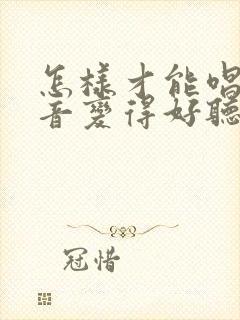 怎樣才能唱
音變得好聽
冠惜